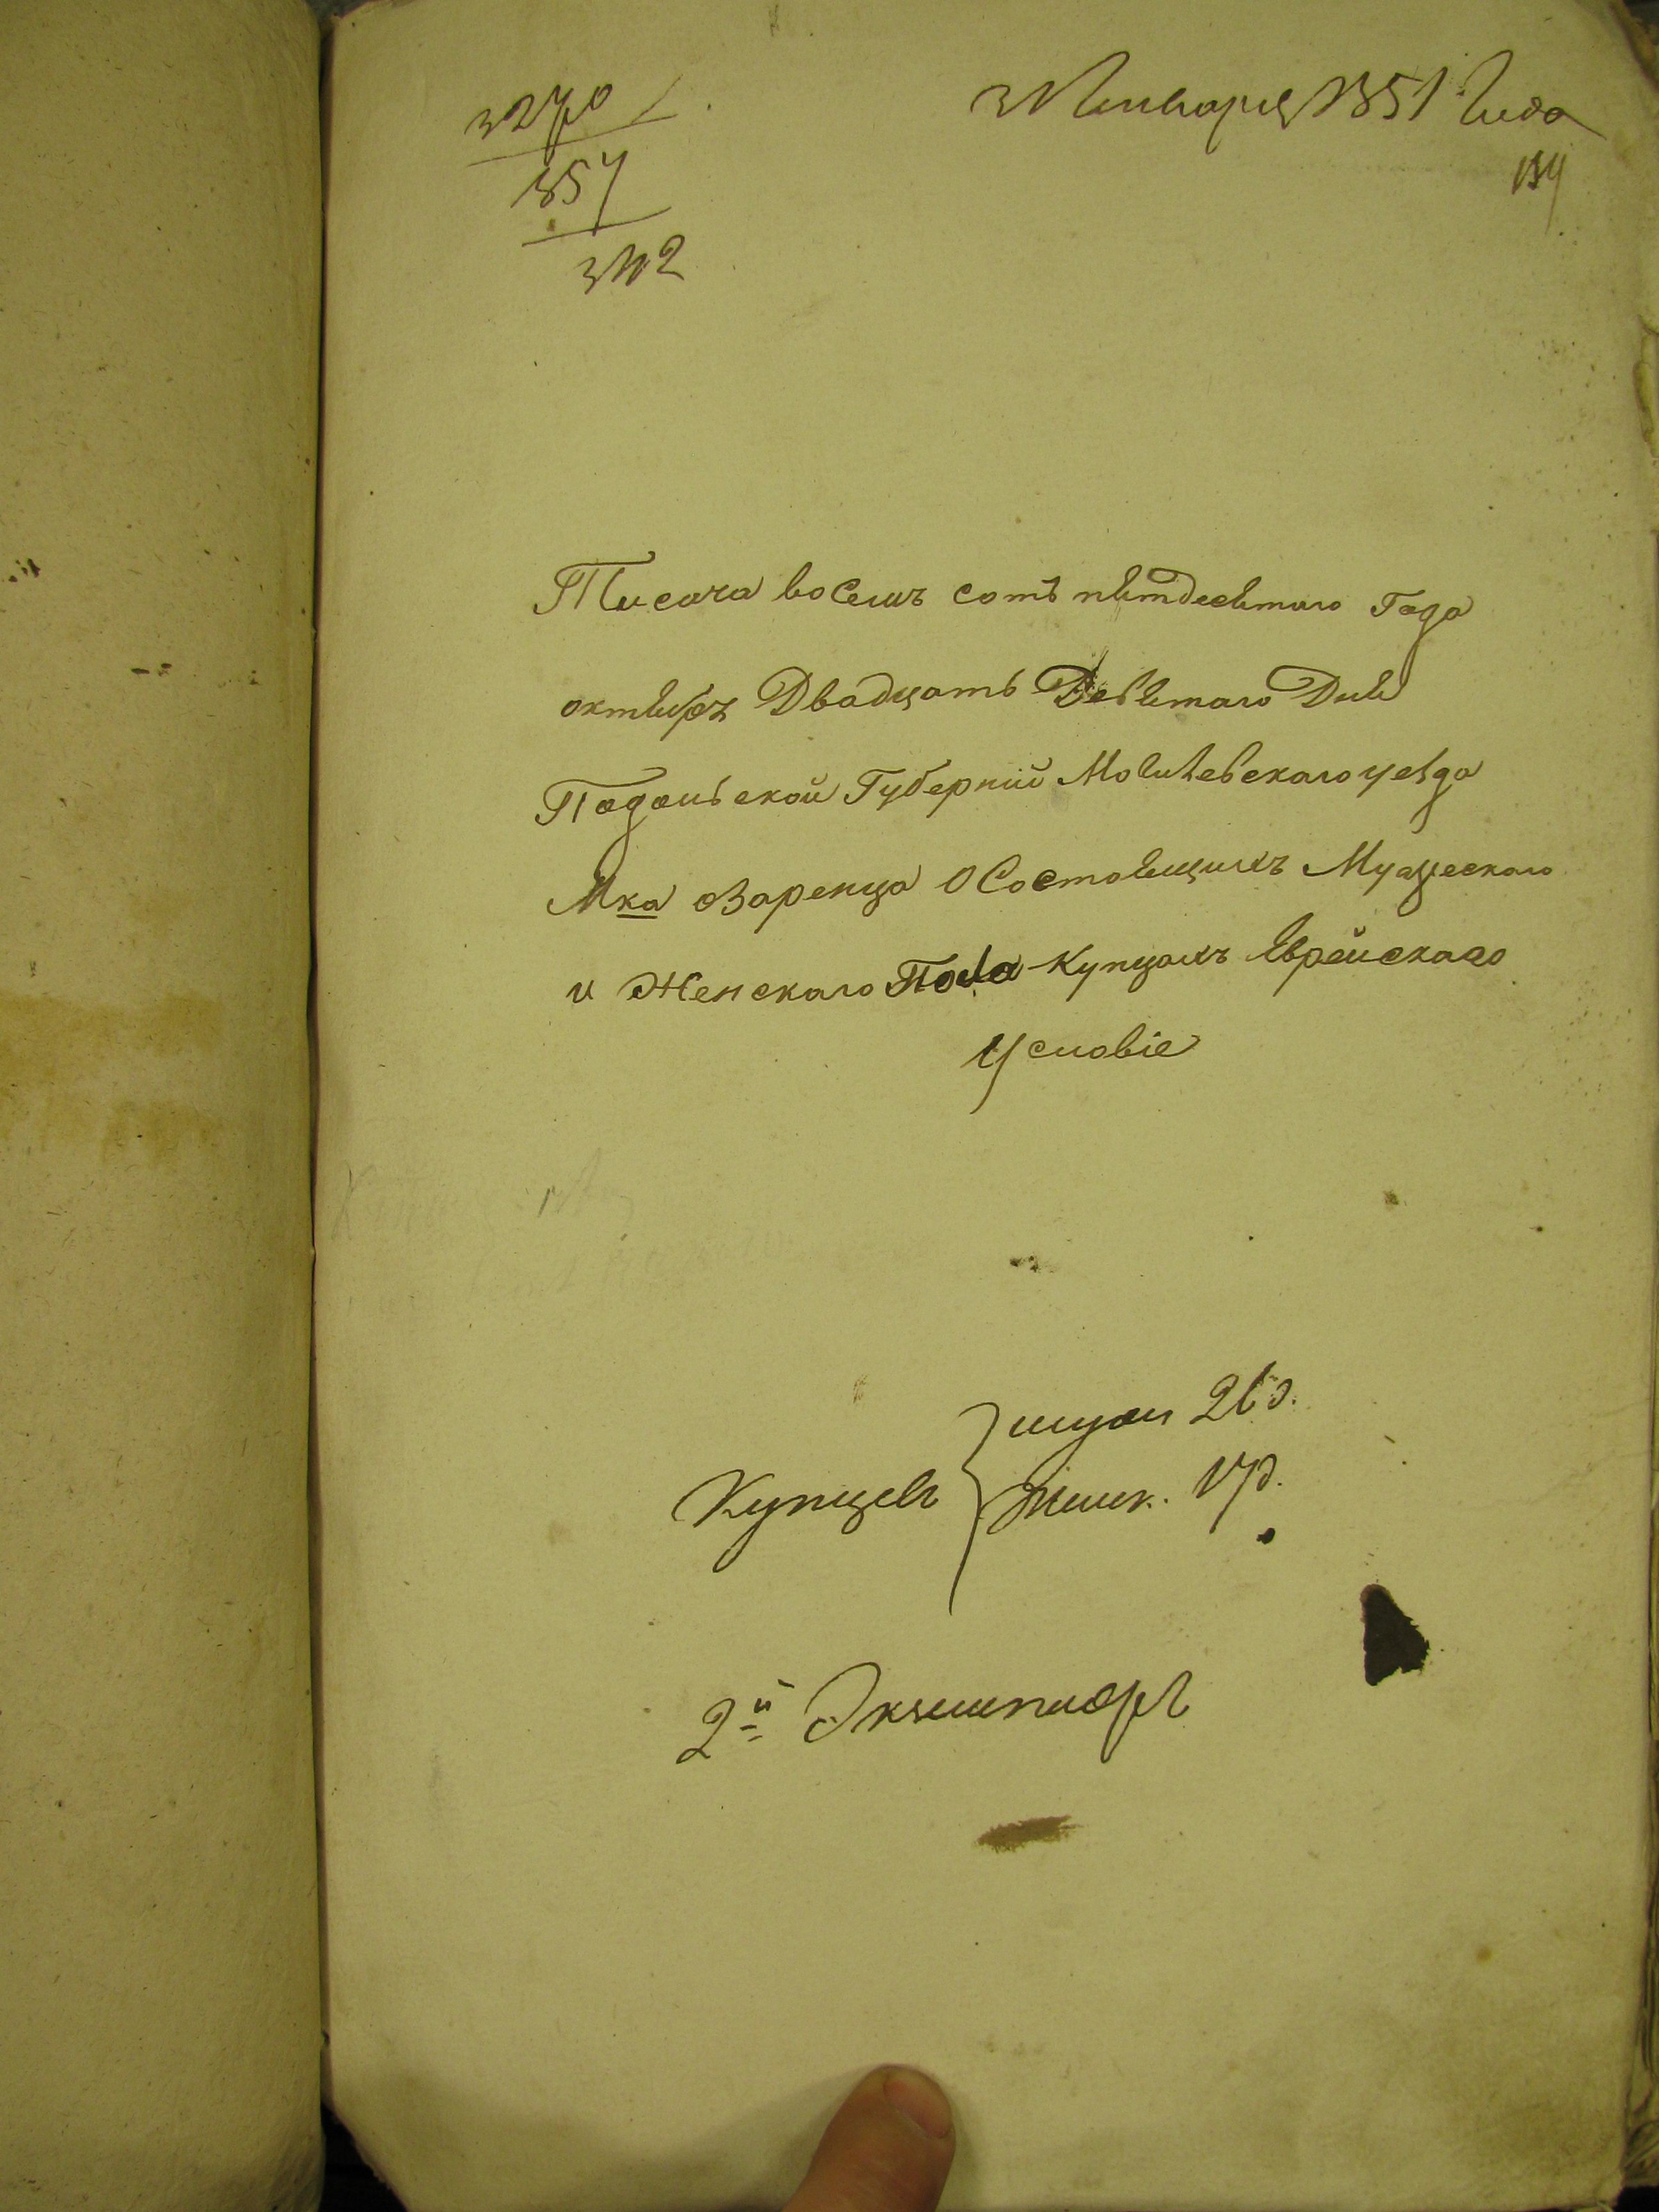 3 Января 1851 Года
3270
357
134
Тисача восемъ сотъ пятдесятаго Года
октября Двадцать Девятаго Дня
Подольской Губерніи Могилевскаго уезда
Мка Озаренца О Состоящихъ Мужескаго
и Женскаго Пола Купцахъ Еврейскаго
Условіе
Купцевъ { муж. 26 д.
женск. 17 д.
2й Экземпляръ